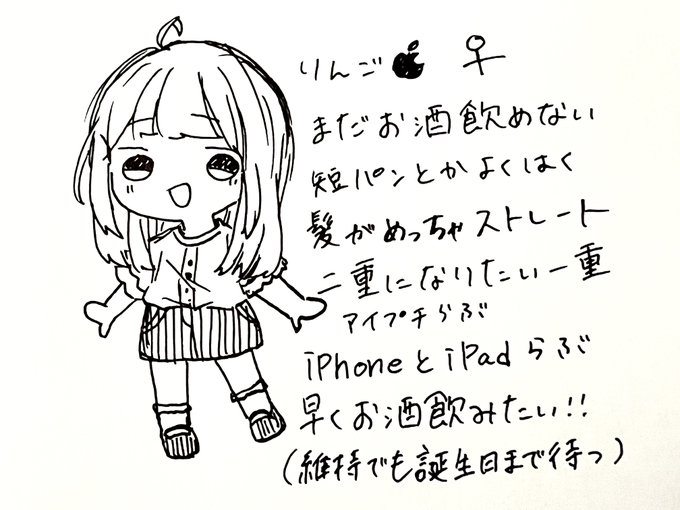 りんご ♀
まだお酒飲めない
短パンとかよくはく
髪がめっちゃストレート
二重になりたい一重
アイプチらぶ
iPhoneとiPadらぶ
早くお酒飲みたい!!
(維持でも誕生日まで待つ)